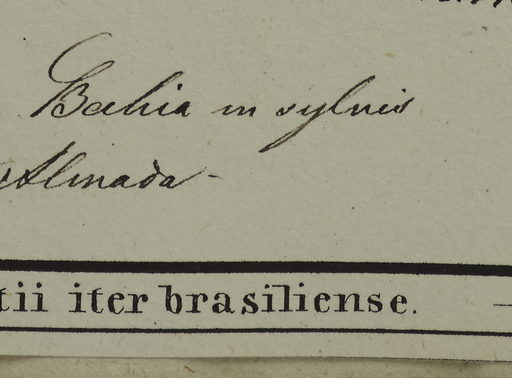 Bahia in sylvis
Almada
tii iter brasiliense.